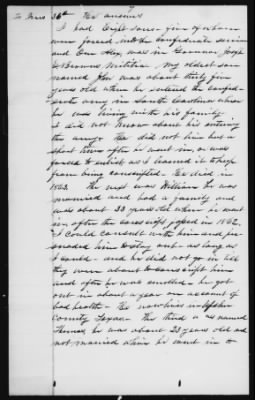 To Inter 36th He answers
I had Eight sons - five of whom
were forced into the Confederate service
and One Alex, was in Governor Joseph
E Browns Militia. My oldest son
named Jno was about thirty five
years old when he entered the Confed-
erate army in South Carolina where
he was living with his family.
I did not know about his entering
the army. He did not live but a
short time after he went in, or was
forced to enlist as I learned it to keep
from being conscripted. He died in
1863. The next was William he was
married and had a family and
was about 33 years old when he went
in after the conscript passed in 1862.
I could consult with him and per-
suaded him to stay out as long as
I could - and he did not go in till
they were about to conscript him
and after he was enrolled - he got
out in about a year on account of
bad health - He now lives in Upshur
County Texas. The third was named
Thomas, he was about 23 years old and
not married when he went in to